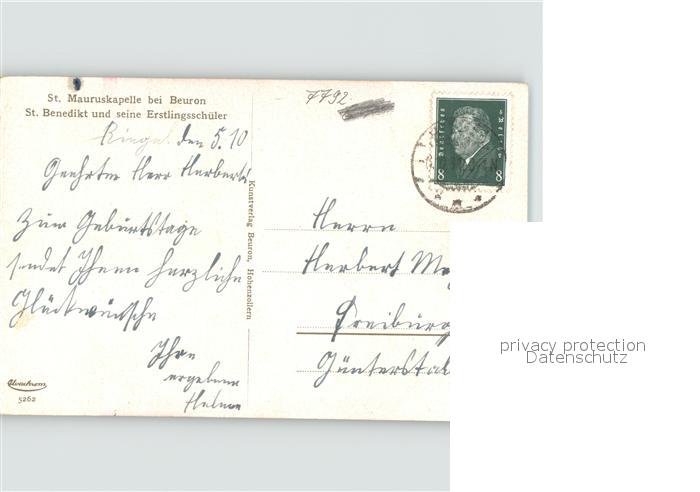 St. Mauruskapelle bei Beuron
St. Benedikt und seine Erstlingsschüler
7792
den 5.10
Geehrter Herr Herbert
Zum Geburtstage
sendet Ihnen herzliche
Glückwünsche
Ihre
ergebene
Helene
5262
Kunstverlag Beuron, Hohenzollern
Deutsches Reich
8 8
Herrn
Herbert
Freiburg
Günterstal
privacy protection
Datenschutz